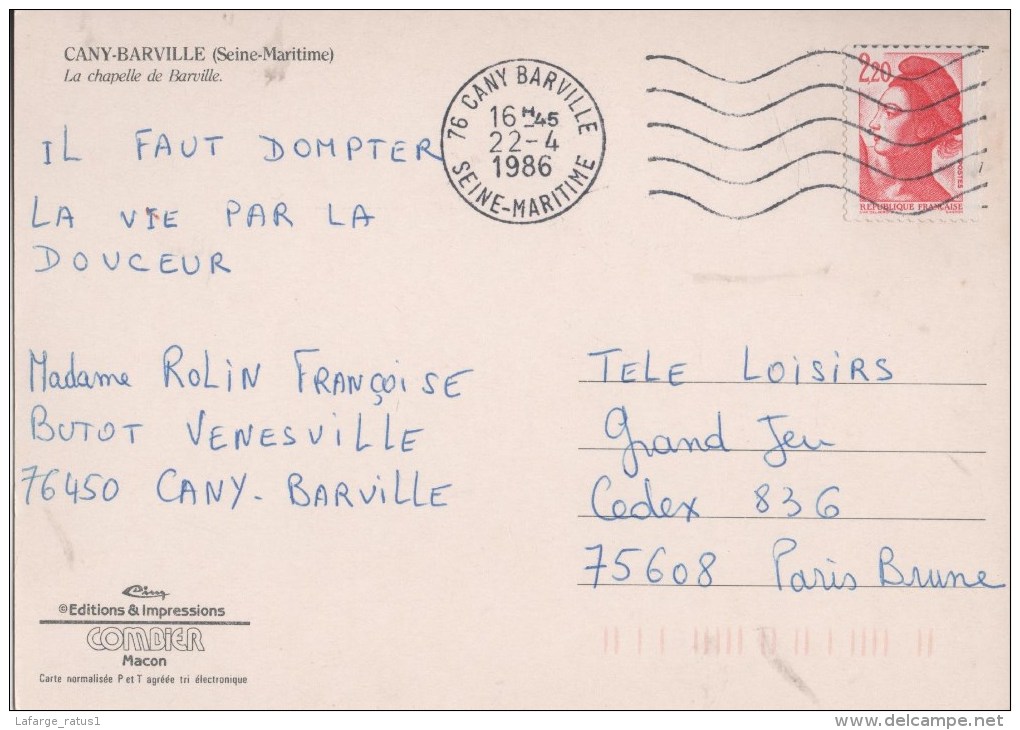 CANY-BARVILLE (Seine-Maritime)
La chapelle de Barville.
76 CANY BARVILLE
16H45
22-4
1986
SEINE-MARITIME
2,20
POSTES
RÉPUBLIQUE FRANÇAISE
IL FAUT DOMPTER
LA VIE PAR LA
DOUCEUR
Madame ROLIN FRANÇOISE
BUTOT VENESVILLE
76450 CANY-BARVILLE
TELE LOISIRS
Grand Jeu
Cedex 836
75608 Paris Brune
Cim
©Editions & Impressions
COMBIER
Macon
Carte normalisée P et T agréée tri électronique
Lafarge_ratus1
www.delcampe.net